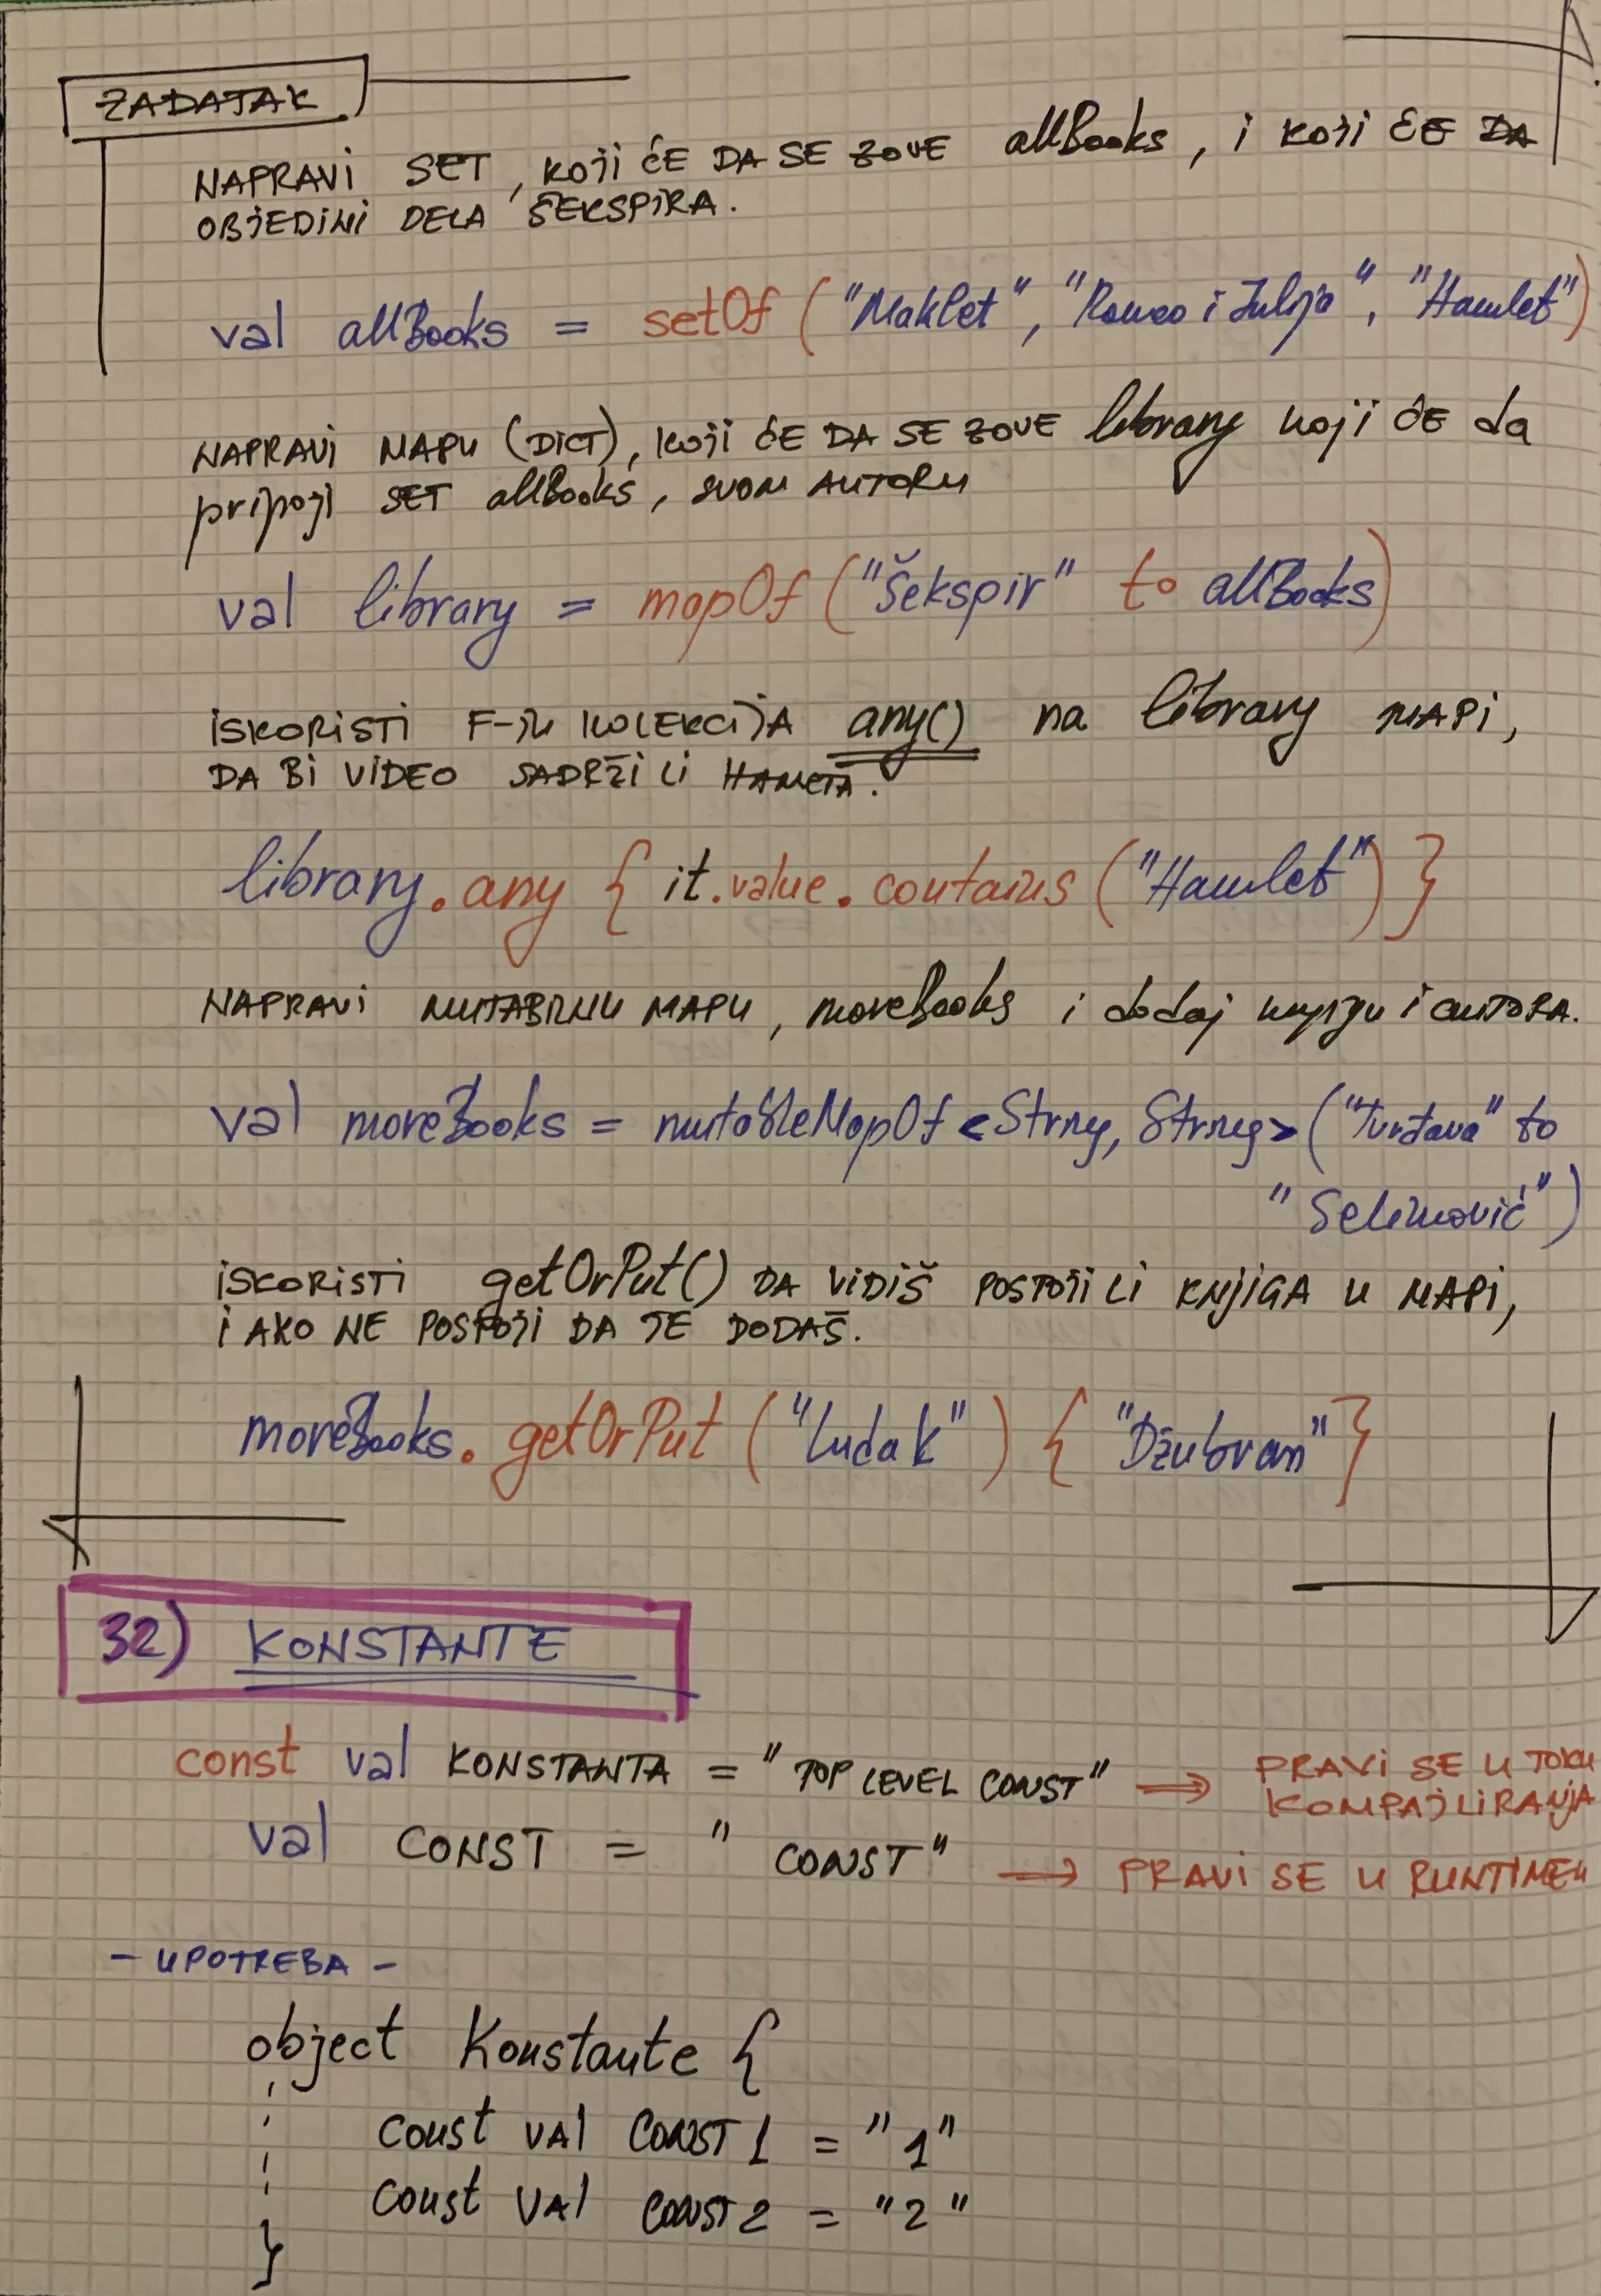 ZADATAK
NAPRAVI SET, KOJI ĆE DA SE ZOVE allBooks, i KOJI ĆE DA
OBJEDINI DELA ŠEKSPIRA.
val allBooks = setOf ("Maklet", "Romeo i Julija", "Hamlet")
NAPRAVI MAPU (DICT), KOJI ĆE DA SE ZOVE library koji ĆE da
pripoji SET allBooks, svom AUTORU
val library = mapOf ("Šekspir" to allBooks)
ISKORISTI F-JU KOLEKCIJA any() na library MAPI,
DA BI VIDEO SADRŽI LI HAMLETA.
library.any { it.value.contains ("Hamlet") }
NAPRAVI MUTABILNU MAPU, moreBooks i dodaj knjigu i autora.
val moreBooks = mutableMapOf <String, String> ("Tvrđava" to
"Selimović")
ISKORISTI getOrPut() DA VIDIŠ POSTOJI LI KNJIGA U MAPI,
I AKO NE POSTOJI DA JE DODAŠ.
moreBooks.getOrPut ("Ludak") { "Džubran" }
32) KONSTANTE
const val KONSTANTA = "TOP LEVEL CONST" → PRAVI SE U TOKU
KOMPAJLIRANJA
val CONST = "CONST" → PRAVI SE U RUNTIMEU
- UPOTREBA -
object Konstante {
const val CONST1 = "1"
const val CONST2 = "2"
}